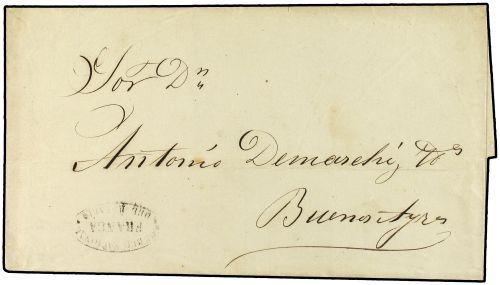 Sor Dn
Antonio Demarchi, 
Buenos Ayres
FRANCA